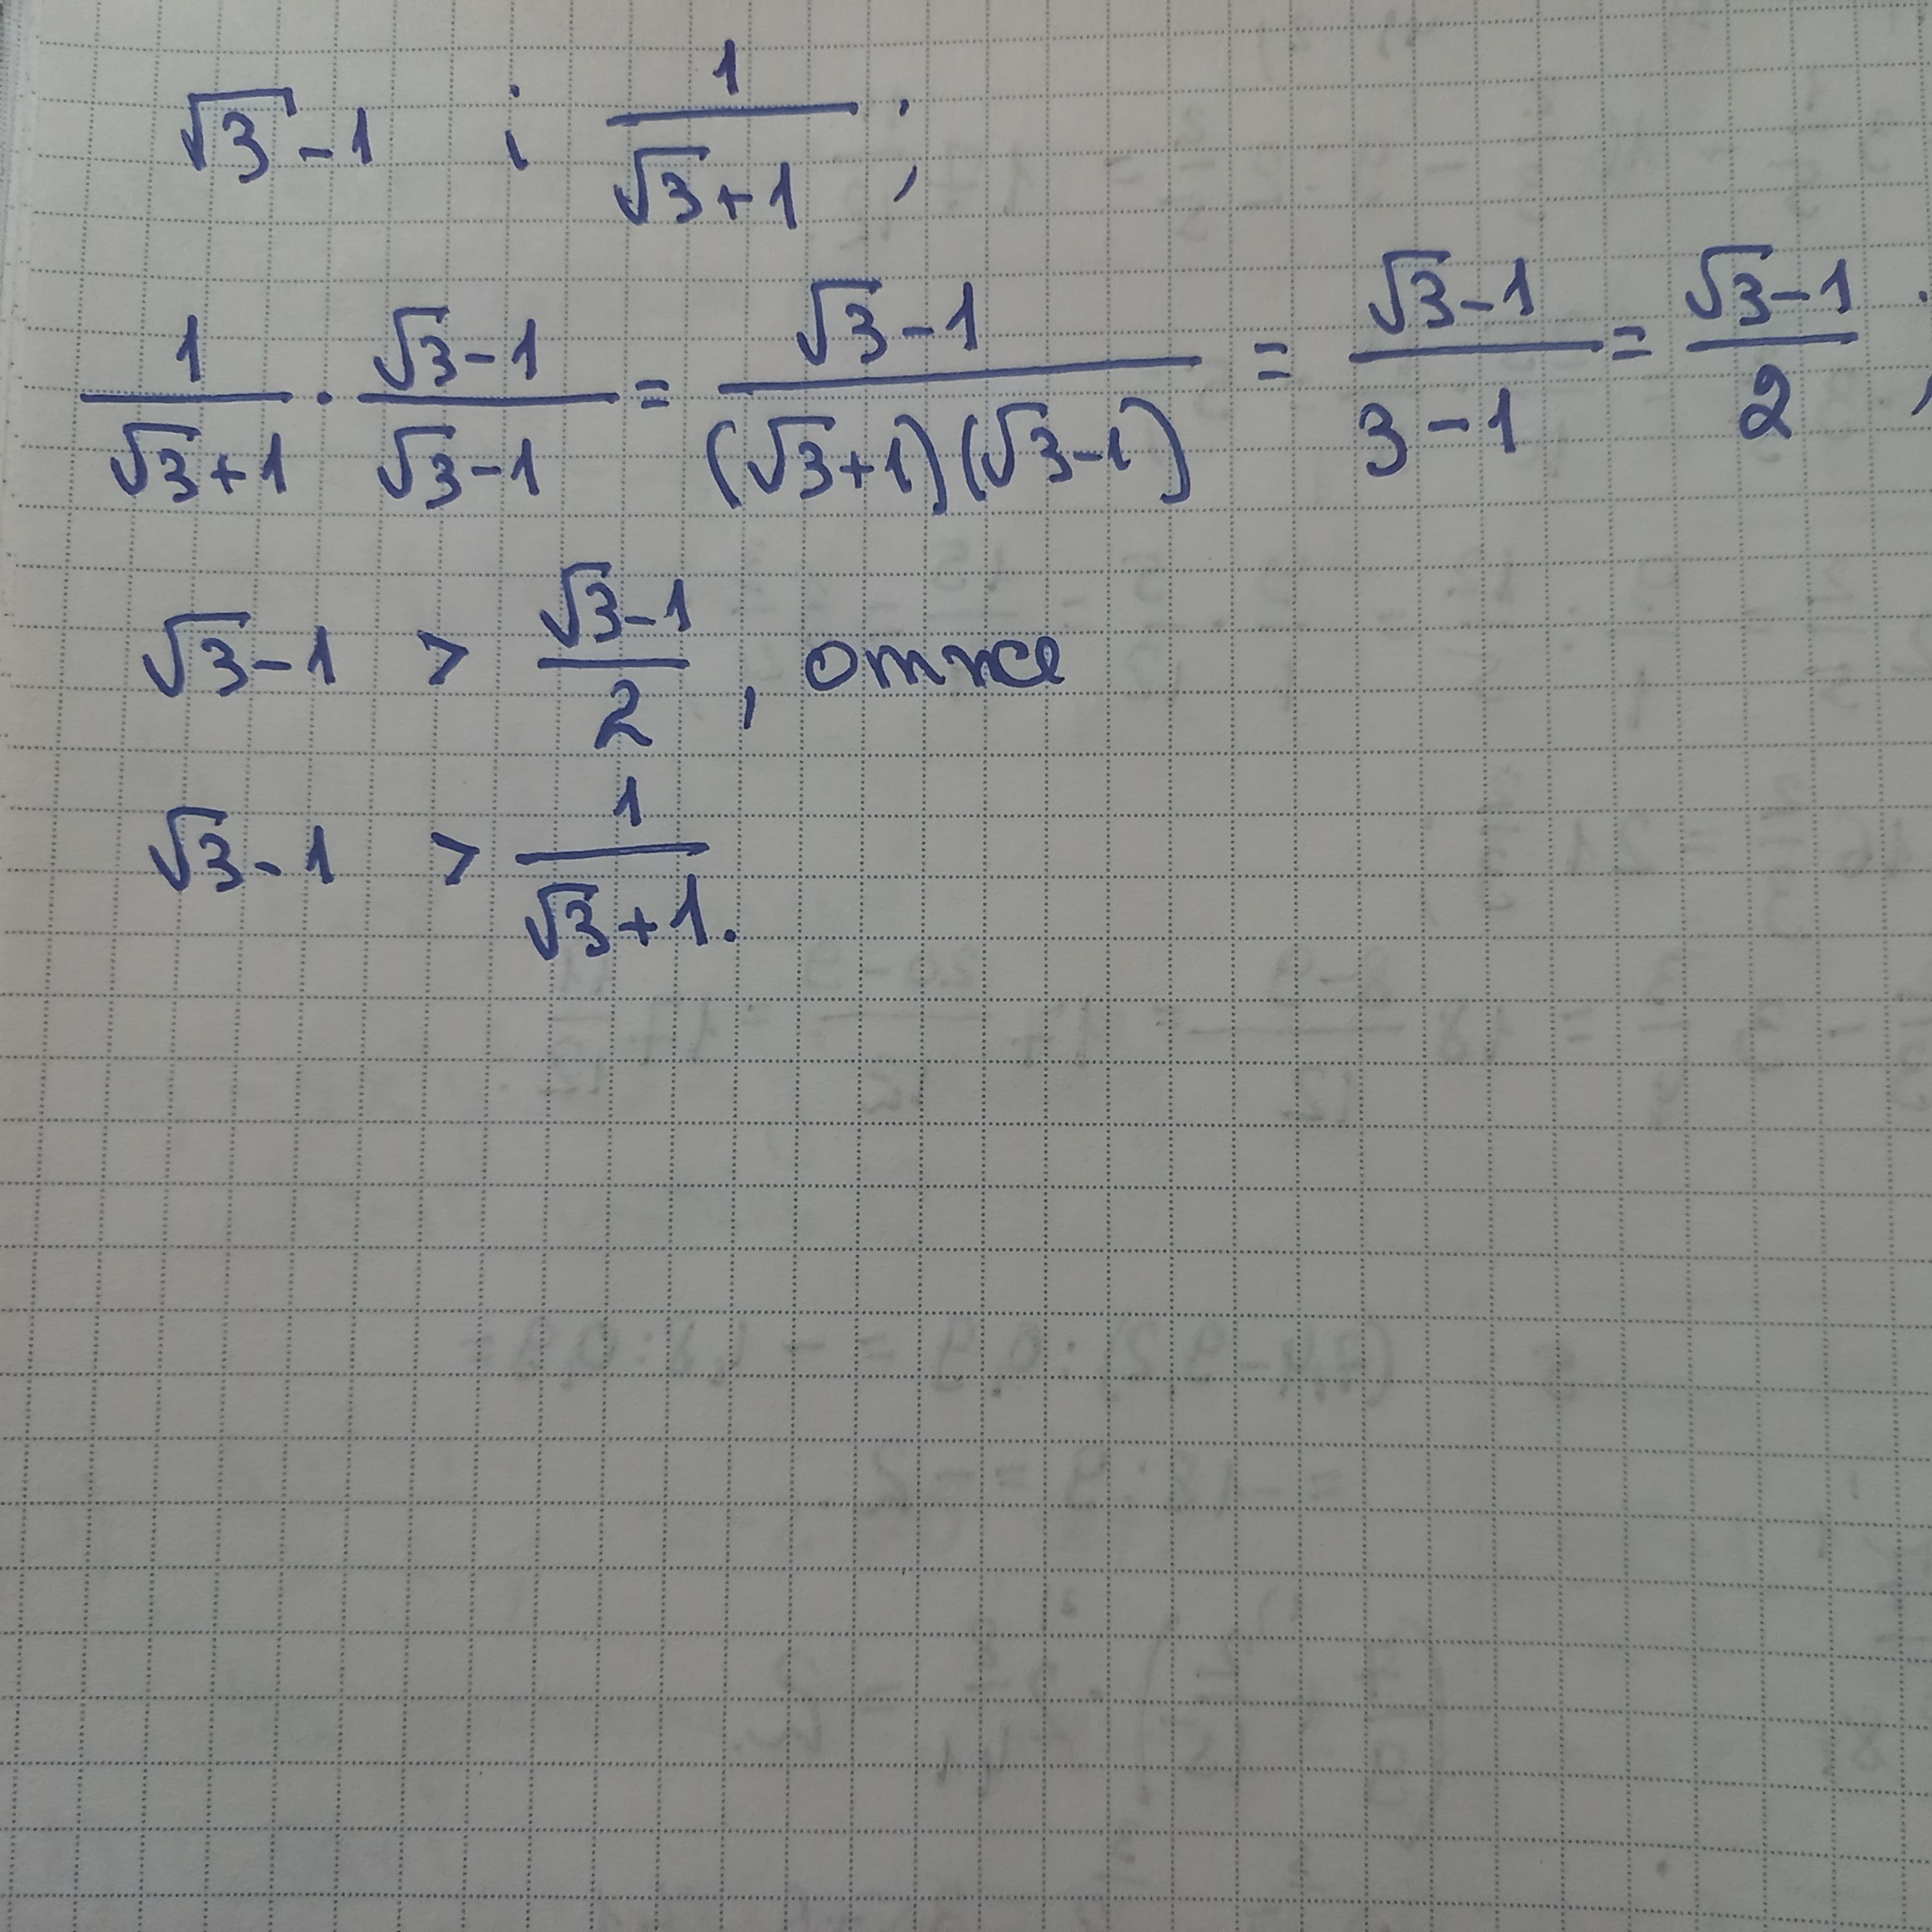 √3 - 1 і 1/(√3 + 1) ;
1/(√3 + 1) · (√3 - 1)/(√3 - 1) = (√3 - 1)/((√3 + 1)(√3 - 1)) = (√3 - 1)/(3 - 1) = (√3 - 1)/2 ;
√3 - 1 > (√3 - 1)/2 , отже
√3 - 1 > 1/(√3 + 1).